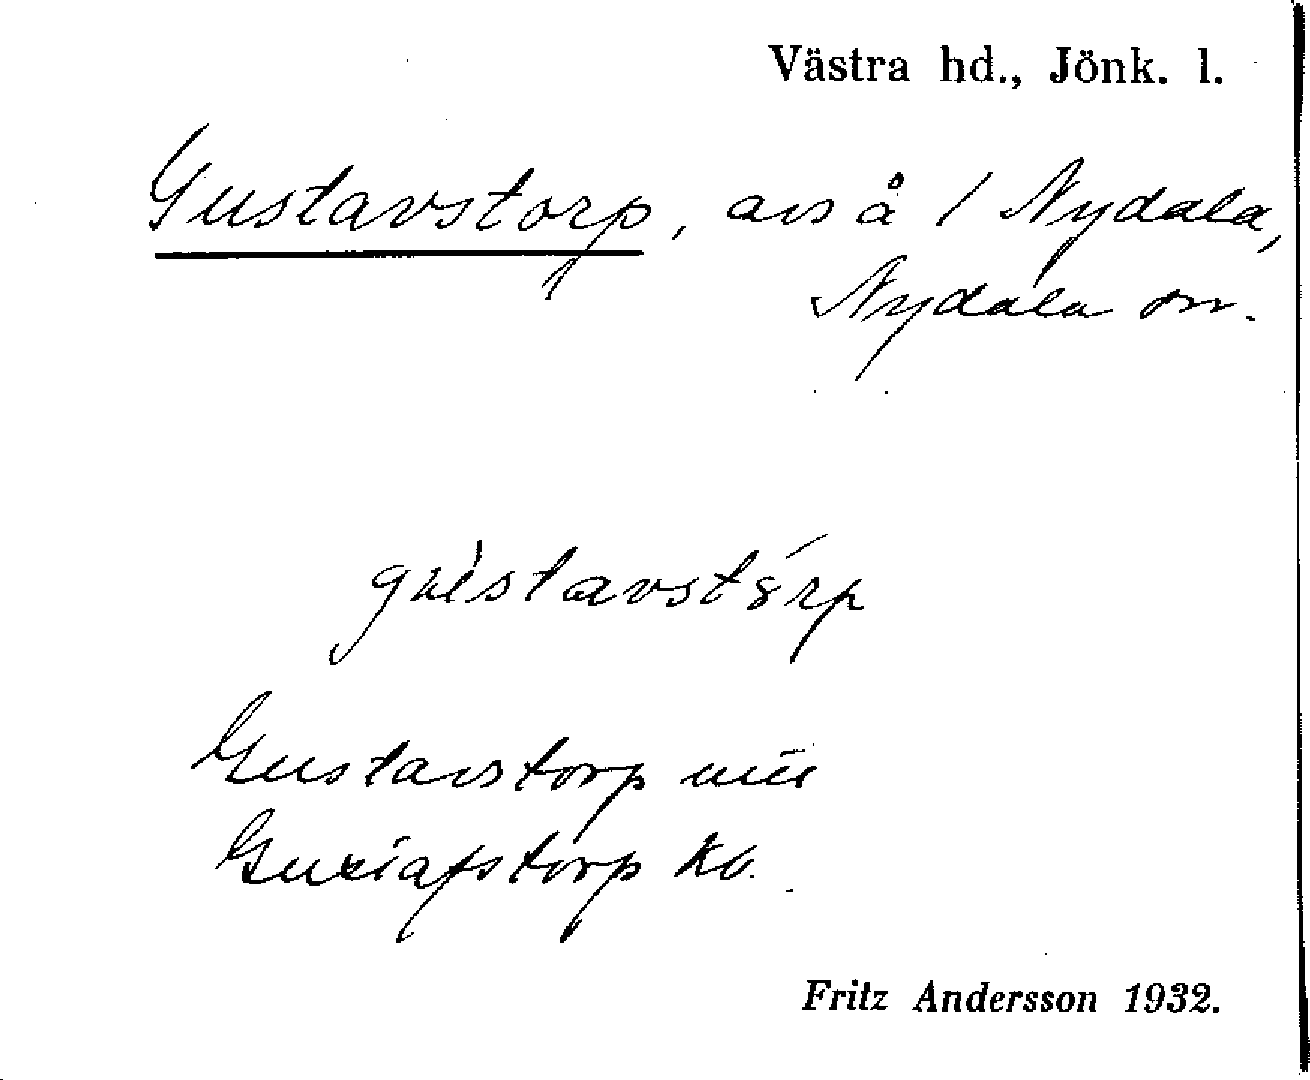 Västra hd., Jönk. l.
Gustavstorp, avs å 1 Nydala,
Nydala sn.
gústavstórp
Gustavstorp
Gustafstorp kb.
Fritz Andersson 1932.